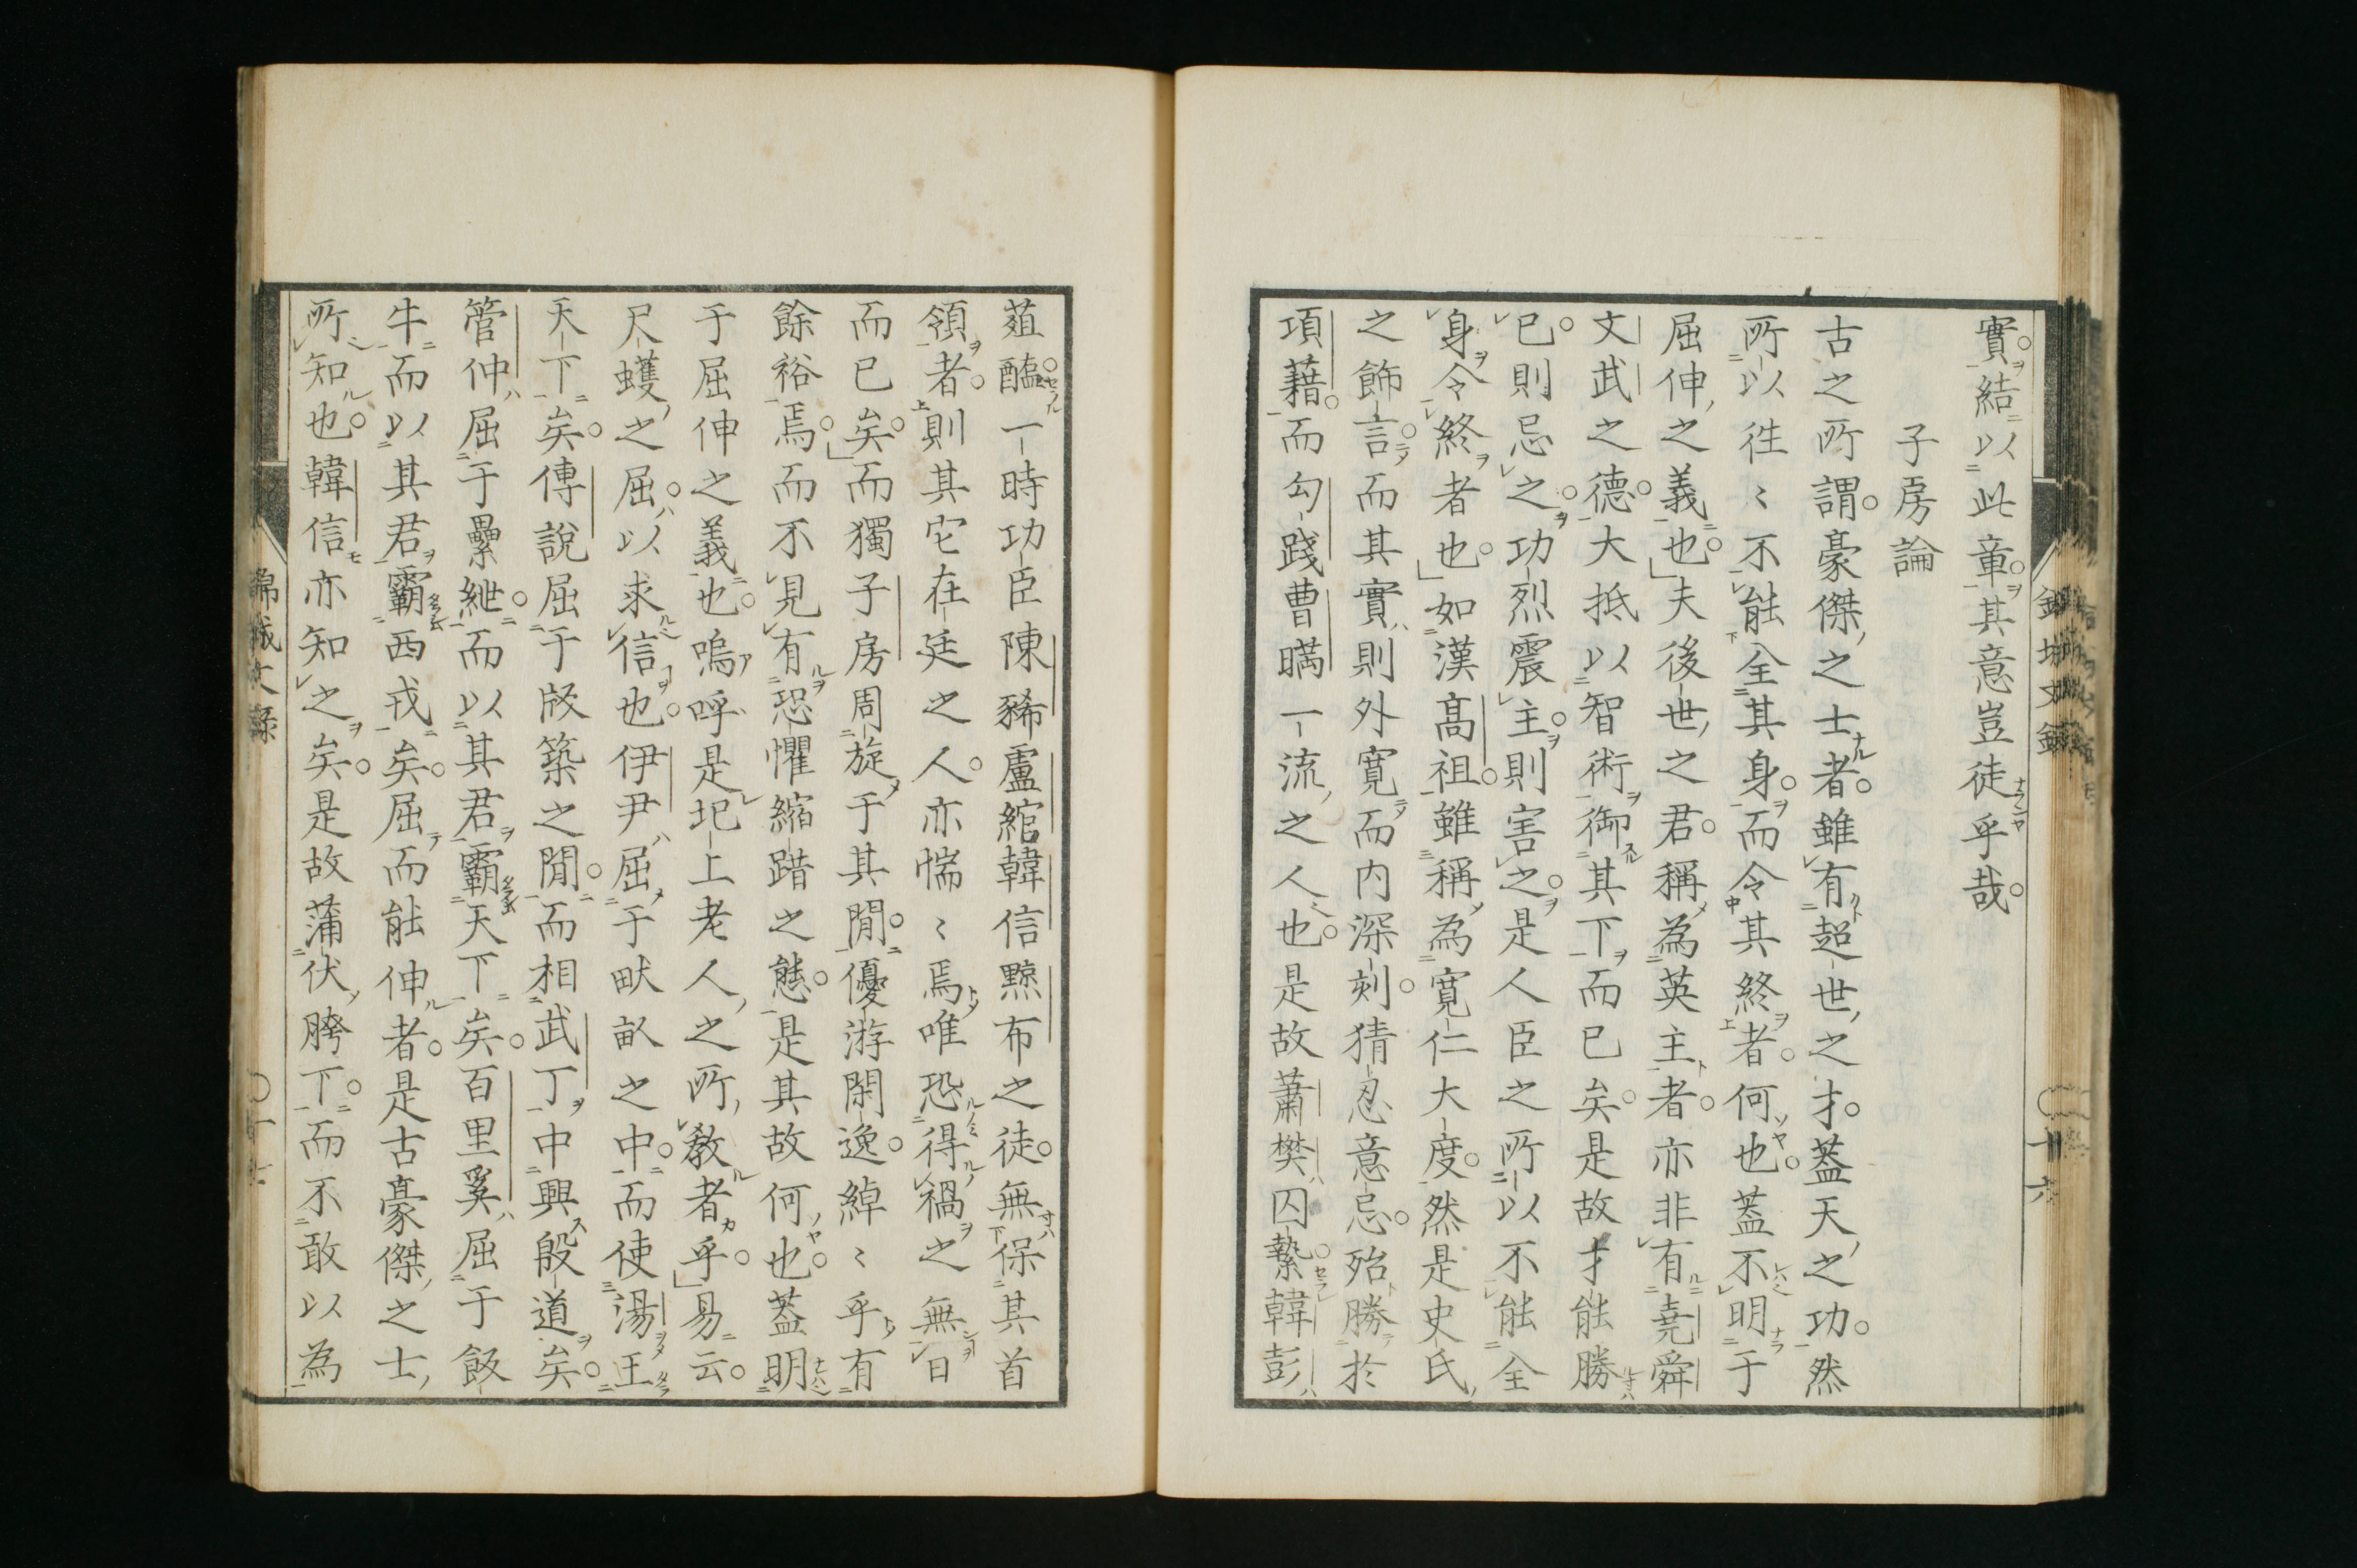 實結以此章其意豈徒乎哉
子房論
古之所謂豪傑之士者雖有超世之才蓋天之功然
所以徃〻不能全其身而令其終者何也蓋不明于
屈伸之義也夫後世之君稱為英主者亦非有堯舜
文武之德大抵以智術御其下而已矣是故才能勝
已則忌之功烈震主則害之是人臣之所以不能全
身令終者也如漢髙祖雖稱為寛仁大度然是史氏
之飾言而其實則外寛而内深刻猜忍意忌殆勝於
項藉而勾踐曹瞞一流之人也是故蕭樊囚縶韓彭
葅醢一時功臣陳豨盧綰韓信黥布之徒無保其首
領者則其它在廷之人亦惴〻焉唯恐得禍之無日
而已矣而獨子房周旋于其閒優游閑逸綽〻乎有
餘裕焉而不見有恐懼縮踖之態是其故何也蓋明
于屈伸之義也嗚呼是圯上老人之所教者乎易云
尺蠖之屈以求信也伊尹屈于畎畝之中而使湯王
天下矣傳說屈于版築之閒而相武丁中興殷道矣
管仲屈于纍紲而以其君霸天下矣百里奚屈于飯
牛而以其君霸西戎矣屈而能伸者是古豪傑之士
所知也韓信亦知之矣是故蒲伏胯下而不敢以為